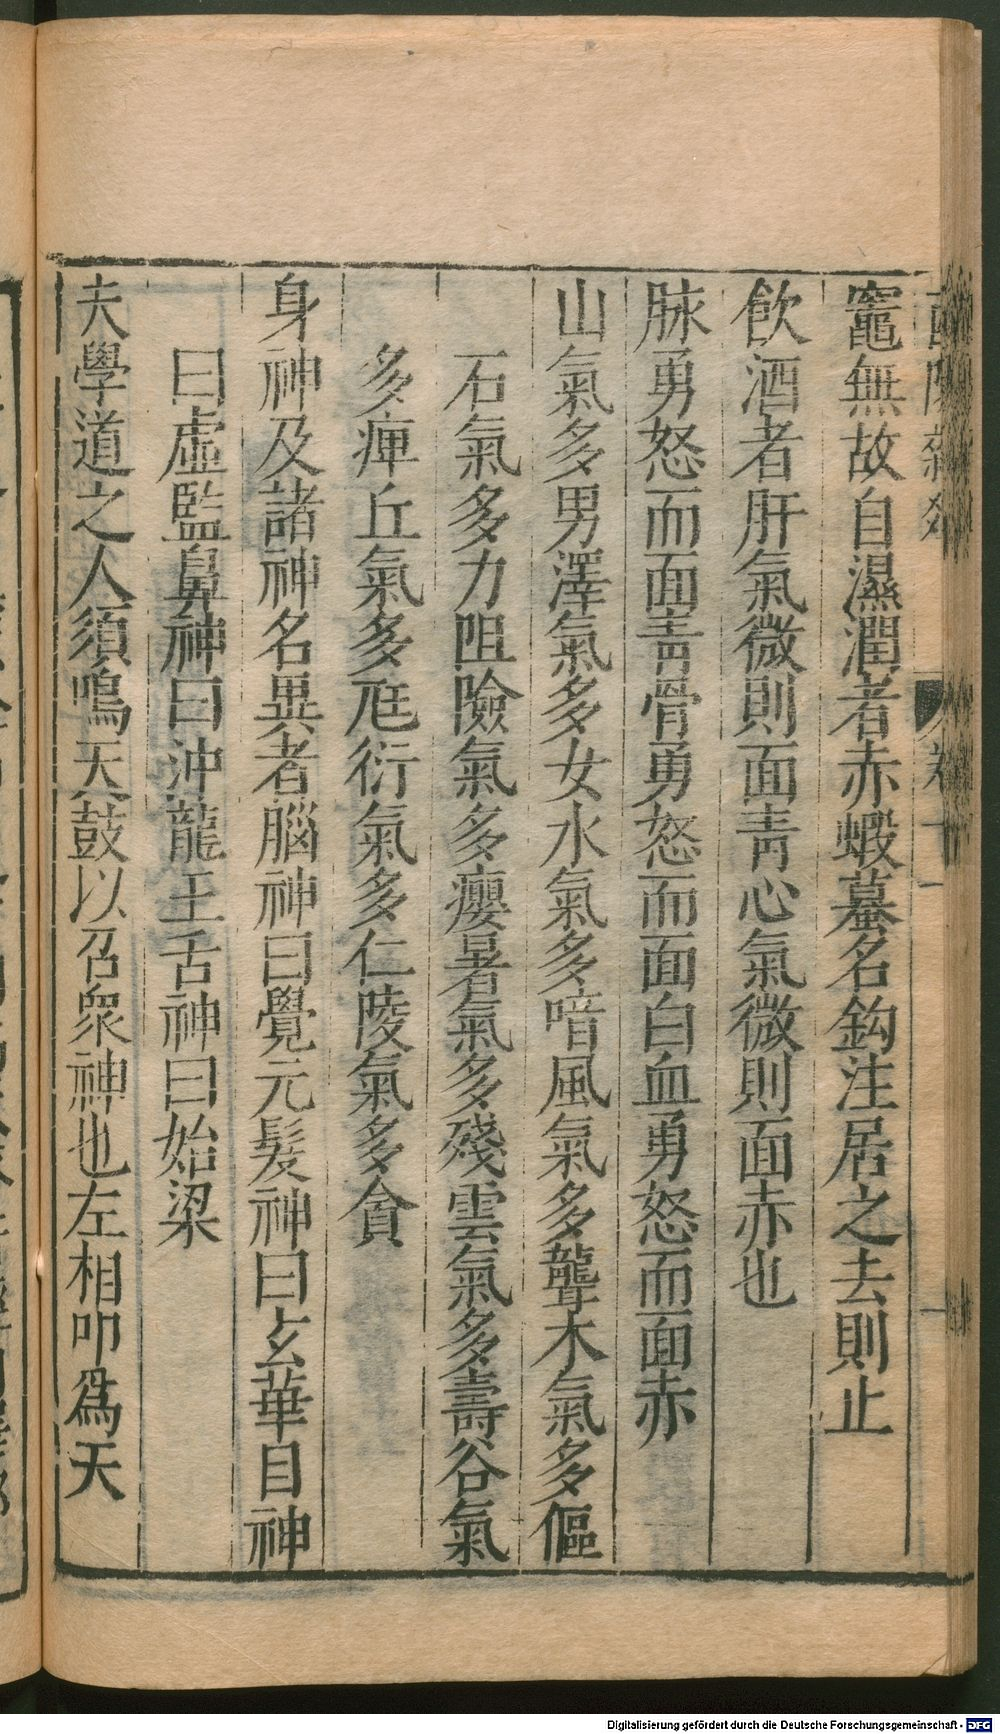 竈無故自濕潤者赤蝦蟇名鈎注居之去則止
飲酒者肝氣微則面靑心氣微則面赤也
脉勇怒而面靑骨勇怒而面白血勇怒而面赤
山氣多男澤氣多女水氣多喑風氣多聾木氣多傴
石氣多力阻險氣多癭暑氣多殘雲氣多壽谷氣
多痺丘氣多尫衍氣多仁陵氣多貪
身神及諸神名異者腦神曰覺元髮神曰玄華目神
曰虛監鼻神曰沖龍王舌神曰始梁
夫學道之人須鳴天鼓以召衆神也左相叩爲天
Digitalisierung gefördert durch die Deutsche Forschungsgemeinschaft - DFG